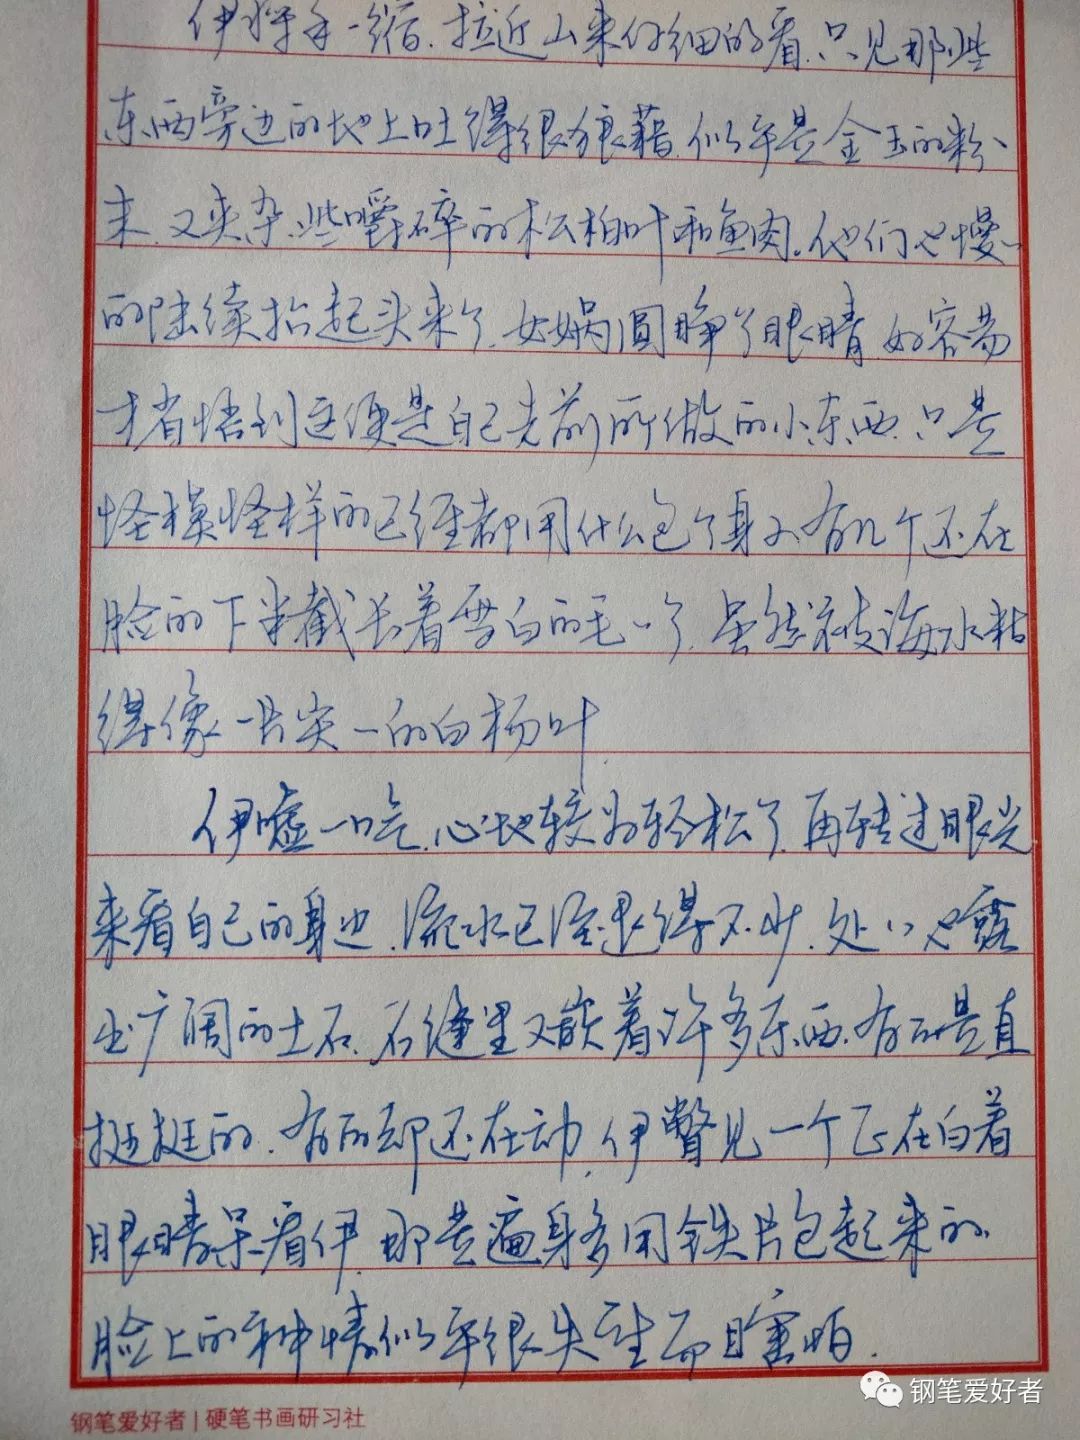 伊将手一缩，拉近山来仔细的看，只见那些
东西旁边的地上吐得很狼藉，似乎是金玉的粉
末，又夹杂些嚼碎的松柏叶和鱼肉。他们也慢慢
的陆续抬起头来了，女娲圆睁了眼睛，好容易
才省悟到这便是自己先前所做的小东西，只是
怪模怪样的已经都用什么包了身子，有几个还在
脸的下半截长着雪白的毛毛了，虽然被海水粘
得像一片尖尖的白杨叶。
伊嘘一口气，心地较为轻松了，再转过眼光
来看自己的身边，流水已经退得不少，处处也露
出广阔的土石，石缝里又嵌着许多东西，有的是直
挺挺的，有的却还在动，伊瞥见一个正在白着
眼睛呆看伊，那是遍身多用铁片包起来的，
脸上的神情似乎很失望而且害怕。
钢笔爱好者 | 硬笔书画研习社
钢笔爱好者